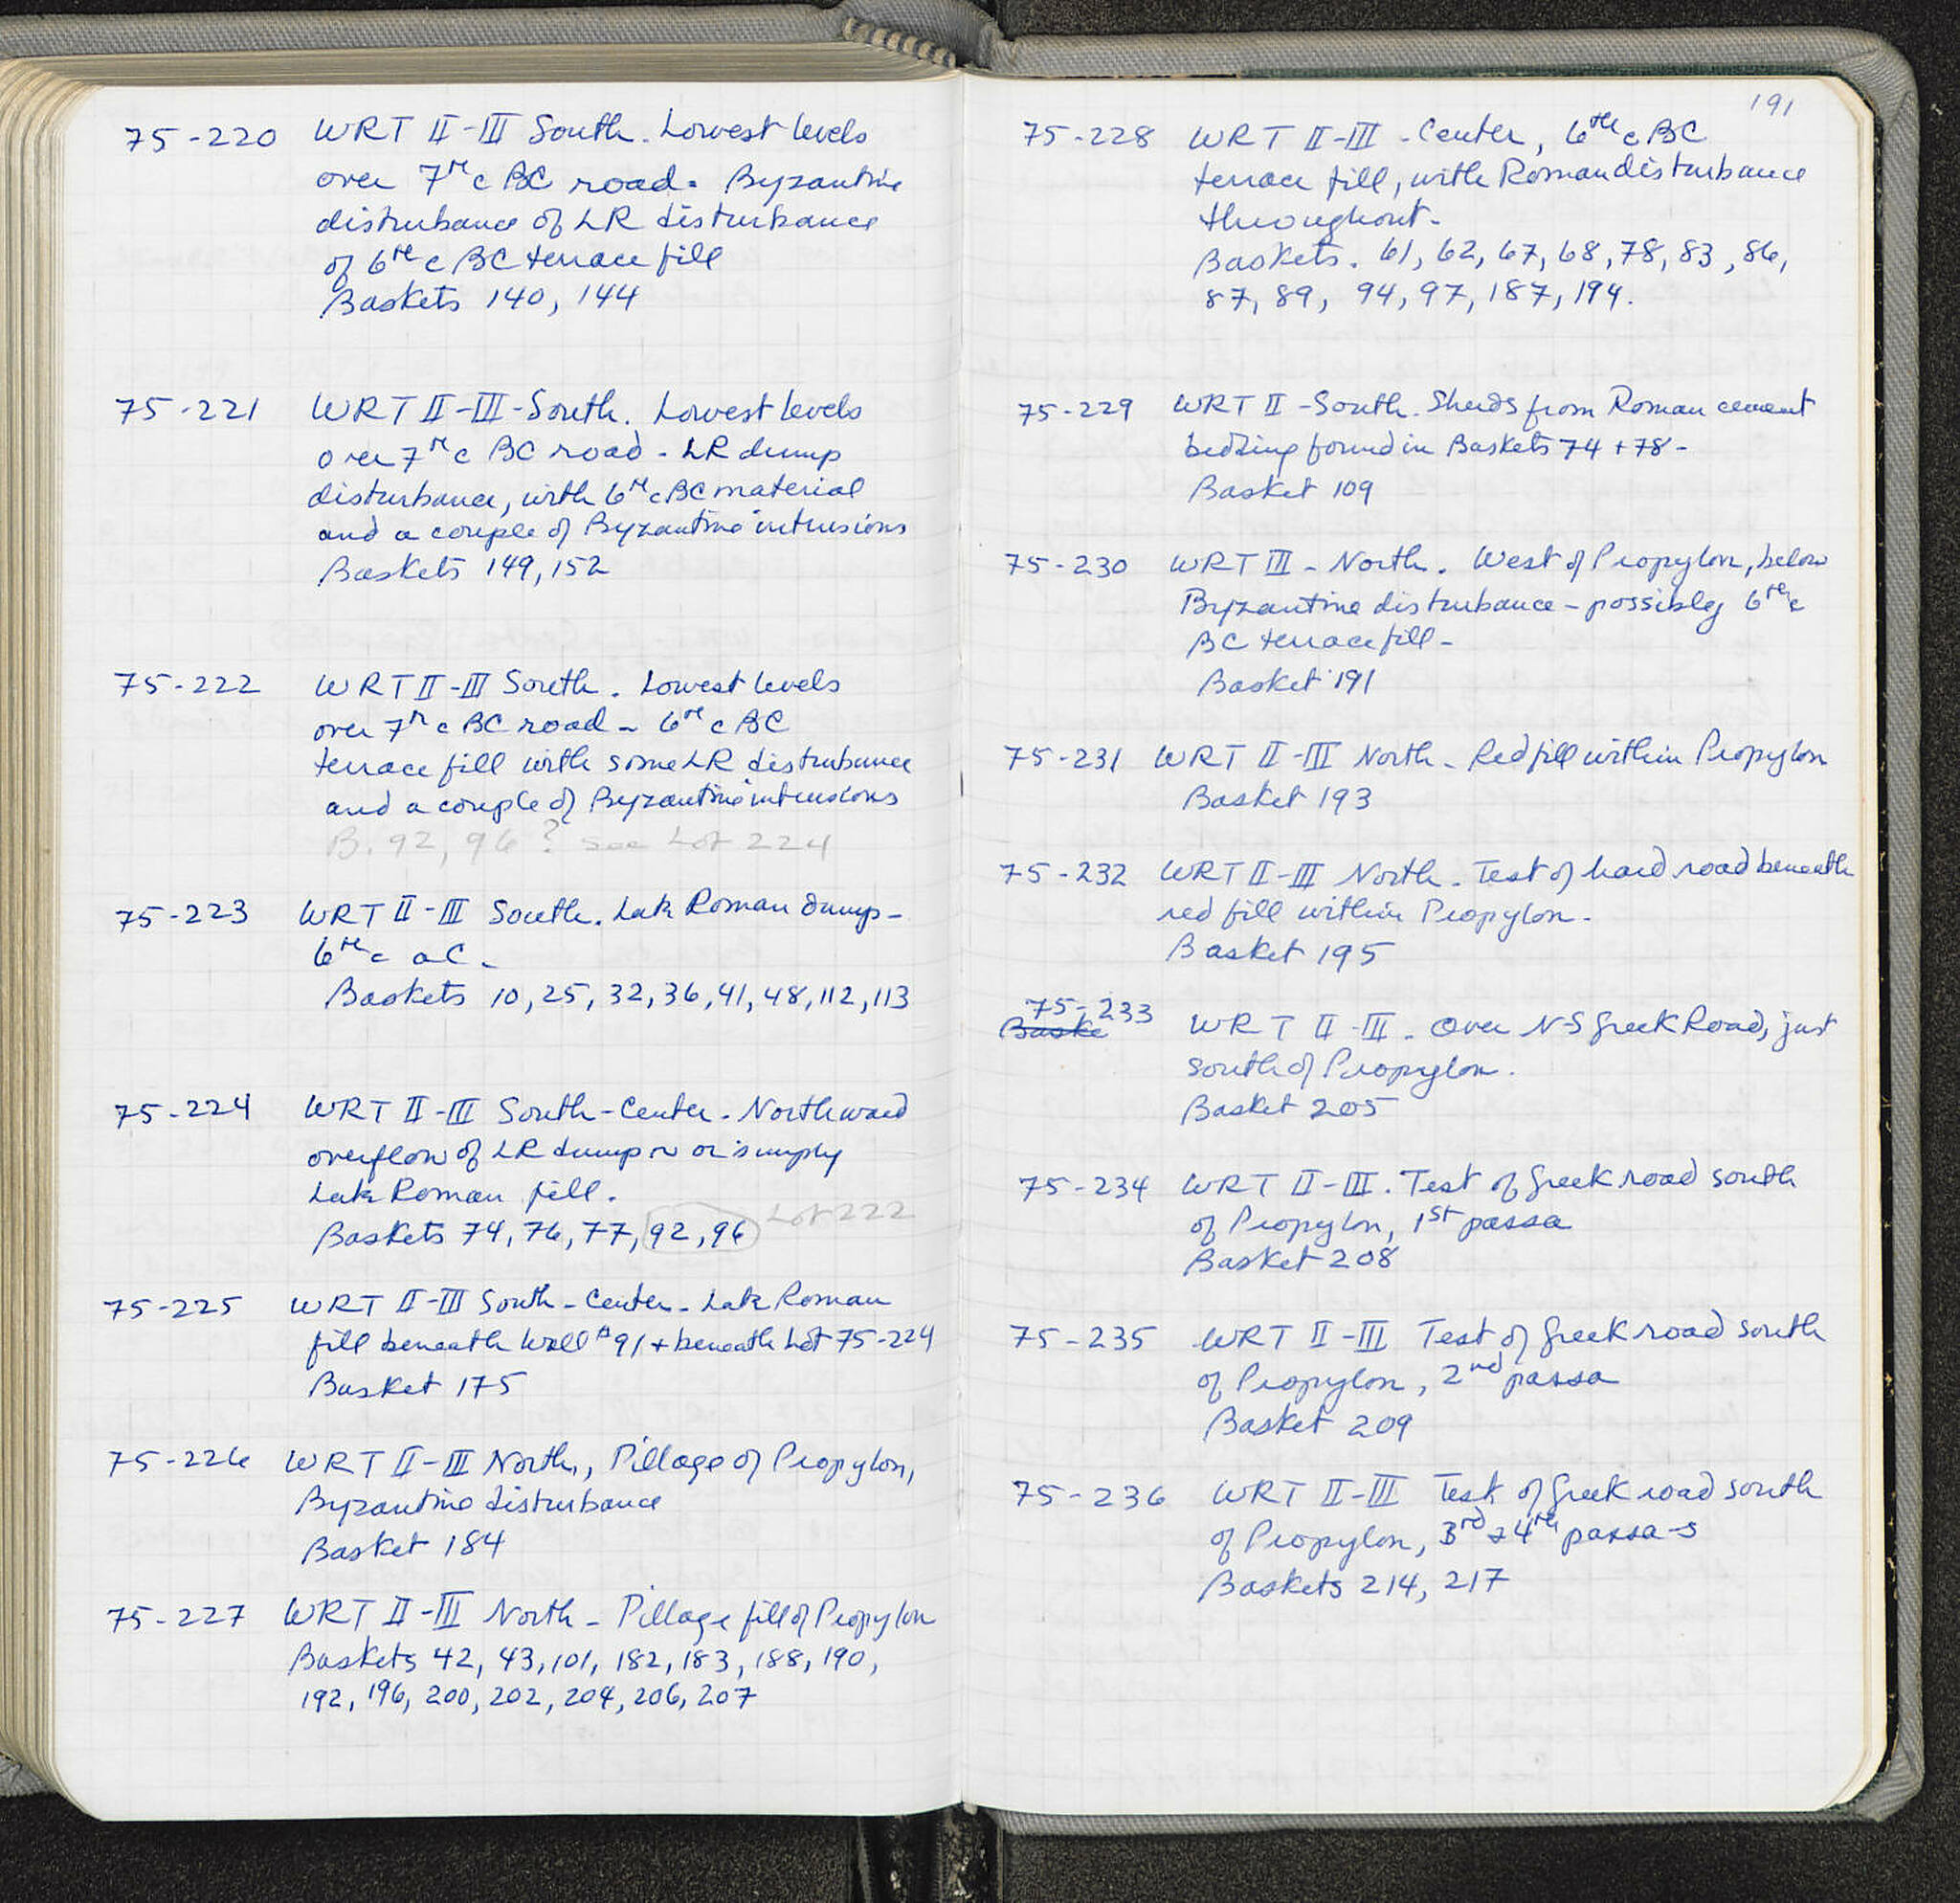 75-220 WRT II-III South. Lowest levels
over 7th c BC road. Byzantine
disturbance of LR disturbance
of 6th c BC terrace fill
Baskets 140, 144
75-221 WRT II-III-South. Lowest levels
over 7th c BC road - LR dump
disturbance, with 6th c BC material
and a couple of Byzantine intrusions
Baskets 149, 152
75-222 WRT II-III South. Lowest levels
over 7th c BC road - 6th c BC
terrace fill with some LR disturbance
and a couple of Byzantine intrusions
B. 92, 96 ? see Lot 224
75-223 WRT II-III South. Late Roman dump -
6th c aC.
Baskets 10, 25, 32, 36, 41, 48, 112, 113
75-224 WRT II-III South-Center. Northward
overflow of LR dump ~ or simply
Late Roman fill.
Baskets 74, 76, 77, 92, 96 Lot 222
75-225 WRT II-III South-Center - Late Roman
fill beneath Wall #91 + beneath Lot 75-224
Basket 175
75-226 WRT II-III North, Pillage of Propylon,
Byzantine disturbance
Basket 184
75-227 WRT II-III North - Pillage fill of Propylon
Baskets 42, 43, 101, 182, 183, 188, 190,
192, 196, 200, 202, 204, 206, 207
191
75-228 WRT II-III - Center, 6th c BC
terrace fill, with Roman disturbance
throughout.
Baskets. 61, 62, 67, 68, 78, 83, 86,
87, 89, 94, 97, 187, 194.
75-229 WRT II-South. Sherds from Roman cement
bedding found in Baskets 74 + 78 -
Basket 109
75-230 WRT III - North. West of Propylon, below
Byzantine disturbance - possibly 6th c
BC terrace fill -
Basket 191
75-231 WRT II-III North - Red fill within Propylon
Basket 193
75-232 WRT II-III North - Test of hard road beneath
red fill within Propylon.
Basket 195
75-233
Baske WRT II-III. Over N-S Greek Road, just
south of Propylon.
Basket 205
75-234 WRT II-III. Test of Greek road south
of Propylon, 1st passa
Basket 208
75-235 WRT II-III Test of Greek road south
of Propylon, 2nd passa
Basket 209
75-236 WRT II-III Test of Greek road south
of Propylon, 3rd & 4th passa-s
Baskets 214, 217